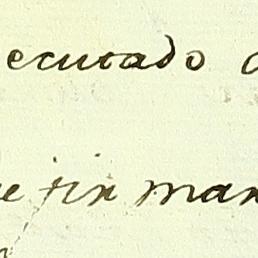 ecutado
e sin man